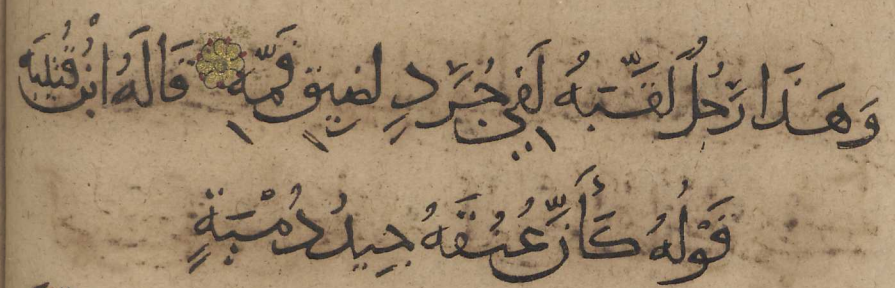 وَهَذَا رَجُلٌ لَقَّبَهُ لَفِي جُرَدٍ لِضِيقِ فَمِّهِ قَالَهُ ابْنُ قُتَيْبَة
قَوْلُهُ كَأَنَّ عُنُقَهُ جِيدُ دُمْيَةٍ